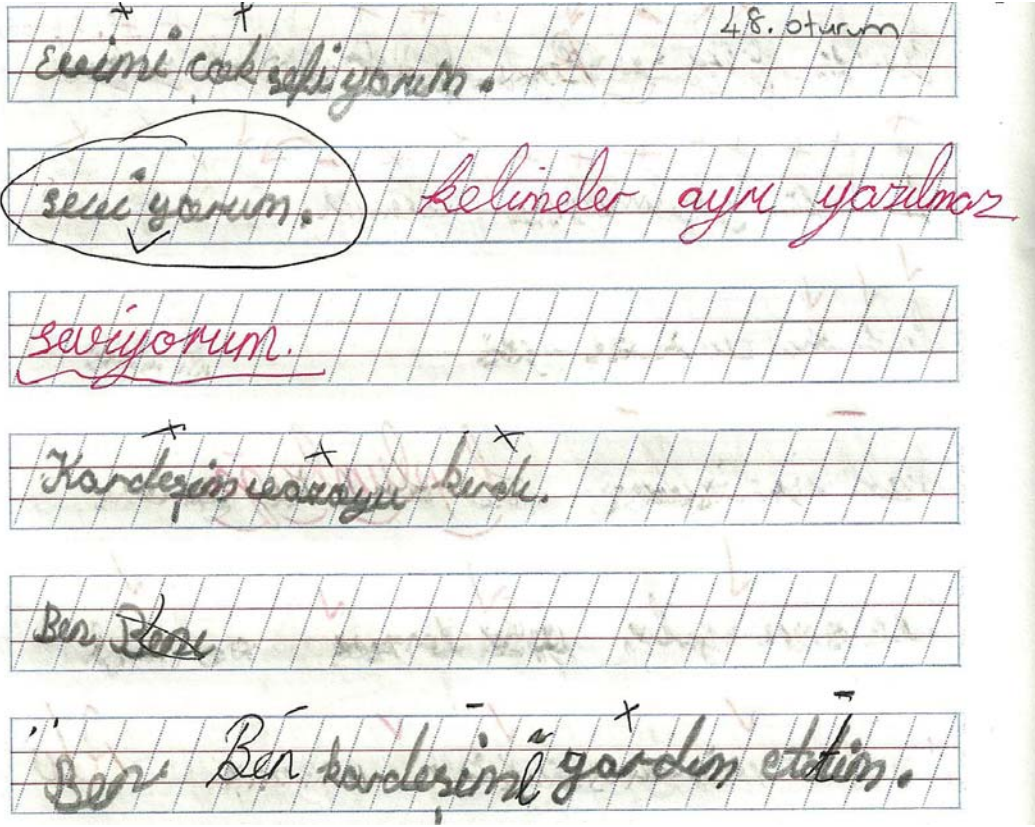 48. oturum
Evimi çok sefi yorum.
sevi yorum. kelimeler ayrı yazılmaz
seviyorum.
Kardeşim vazoyu kırdı.
Ben Beni
Ben Ben kardeşimi yardım ettim.